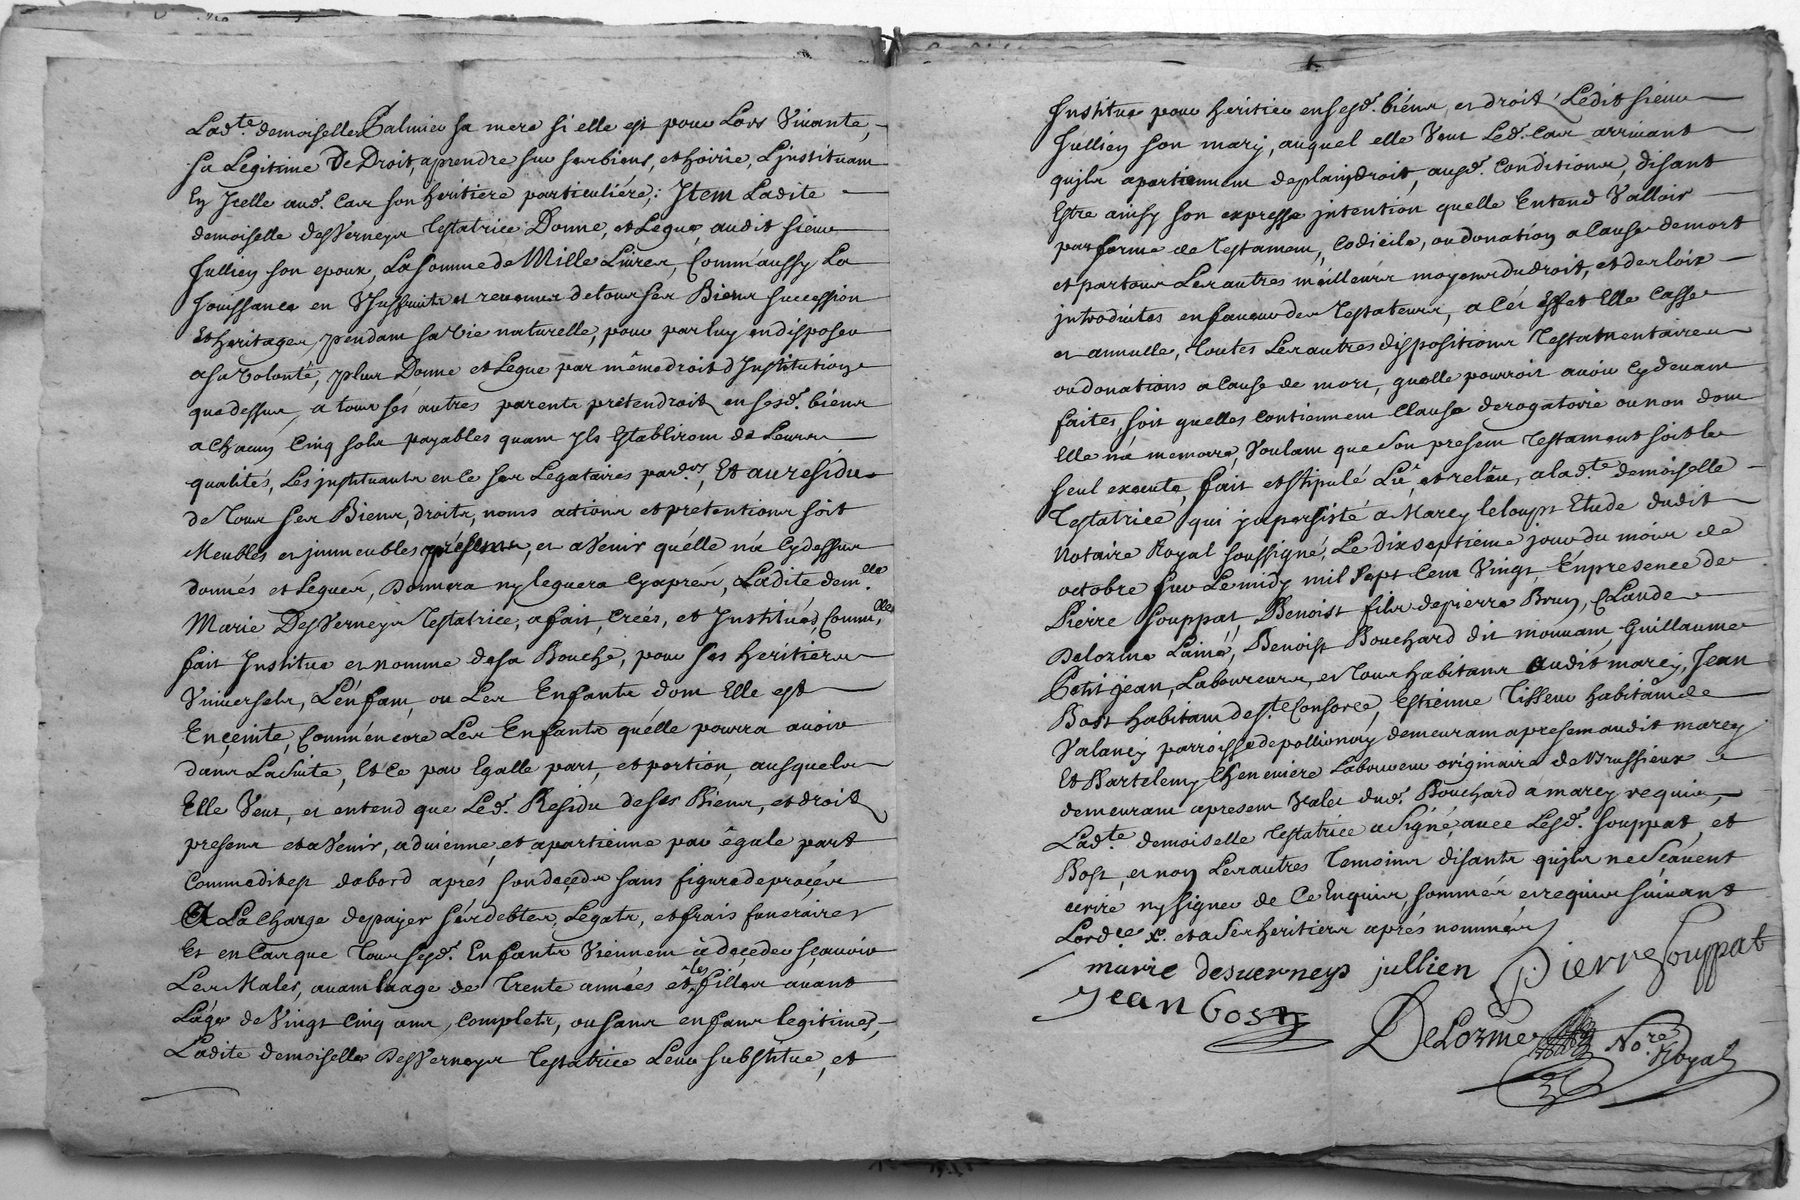 Lad.te demoiselle Calmier sa mere si elle est pour Lors Vivante,
sa Legitime De Droit, aprendre sur ses biens, et hoirie, L'instituant
En Jcelle aud. Cas son heritiere particuliére; Jtem Ladite
demoiselle desVerneys Testatrice Donne, et Legue, audit sieur
Jullien son epoux, La somme de Mille Livres, Comm'aussy La
Jouissance en Vsufruits et revenus de tous ses Biens succession
Et heritages, pendant sa vie naturelle, pour par luy en disposer
a sa volonté, plus Donne et Legue par même droit d'Institution
que dessus, a tous ses autres parents prétendroit en sesd. biens
a Chacun Cinq sols payables quant Jls Establiront de Leurs
qualités, Les jnstituants en ce ses Legataires par.ers, Et au residu
de Tous ses Biens, droits, noms actions et pretentions soit
Meubles et jmmeubles présents, et avenir qu'elle n'a Cydessus
donnés et Legués, Donnera ny leguera Cyaprés, Ladite dem.lle
Marie DesVerneys Testatrice, a fait, Créés, et Jnstitués, Comm'elle
fait Jnstitue et nomme desa Bouche, pour ses heritiers
Vniversels, L'énfant, ou Les Enfants dont Elle est
Enceinte, Comm'éncore Les Enfants qu'élle pourra avoir
dans La suite, Et Ce par Egalle part, et portion, ausquels
Elle Veut, et entend que Led. Residu de ses Biens, et droits
presens et avenir, advienne et apartienne par égale part
Comme dit est dabord aprés son decéds sans figure de procés
A La Charge de payer ses debtes, Legats, et frais funeraires
Et en Cas que Tous sesd. Enfants Viennent à deceder sçavoir
Les Males, avant l'aage de Trente années et les filles avant
L'age de Vingt Cinq ans, complets, ou sans enfans legitimes,
Ladite demoiselle DesVerneys Testatrice Leur substitue, et
Jnstitue pour heritier en sesd. biéns, et droit, Ledit sieur
Jullien son mary, auquel elle Veut Led. Cas arrivant
qujls apartiennent deplainjdroit, ausd. Conditions, disant
Estre ainsy son expresse jntention quelle Entend Valloir
par forme de Testament, Codicile, ou donation a Cause de mort
et par tous Les autres meilleurs moyens du droit, et des loix
jntroduites en faveur des Testateurs, a Cét Effet Elle Casse
et annulle, toutes Les autres dispositions Testamentaires
ou donations a Cause de mort, quelle pourroit avoir Cydevant
faites, soit quelles contiennent Clause derogatoire ou non dont
Elle n'a memoire, Voulant que son present Testament soit le
seul execute, fait et stipulé Lû, et relûe, a lad.te demoiselle
Testatrice qui y a persisté a Marcy leloups Etude dudit
Notaire Royal soussigné, Le dixseptieme jour du mois de
octobre sur Le midy mil sept Cent Vingt, En presence de
Pierre souppat, Benoist fils de pierre Brun, Claude
Delorme Lainé, Benoist Bouchard dit mouvant Guillaume
Petit jean, Laboureurs, et Tous habitans audit marcy, Jean
Bost habitant de S.te Consorce, Estienne Tisseur habitant de
Valancy parroisse de pollionay demeurant apresent audit marcy
Et Bartelemy Cheneviere Laboureur originaire de Brussieux
demeurant apresent valet dud. Bouchard a marcy requis,
Lad.te demoiselle Testatrice a Signé, avec Lesd. souppat, et
Bost, et non Les autres Temoins disants qujls ne sçavent
ecrire ny signer de Ce Enquis, sommés et requis suivant
Lord.ce R. et a ses heritiers aprés nommés
marie desverneys jullien Pierre Souppat
jean bost
DeLorme No.re Royal